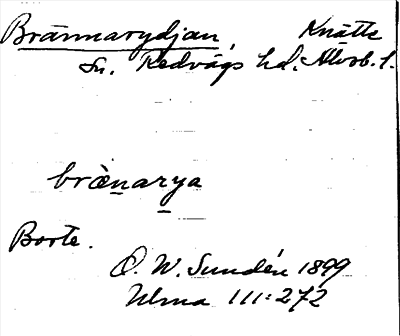 Brännarydjan, Knätte
sn. Redvägs hd. Älvsb. l.
bræ̀narya
Borte.
O. W. Sundén 1899
Ulma 111:272